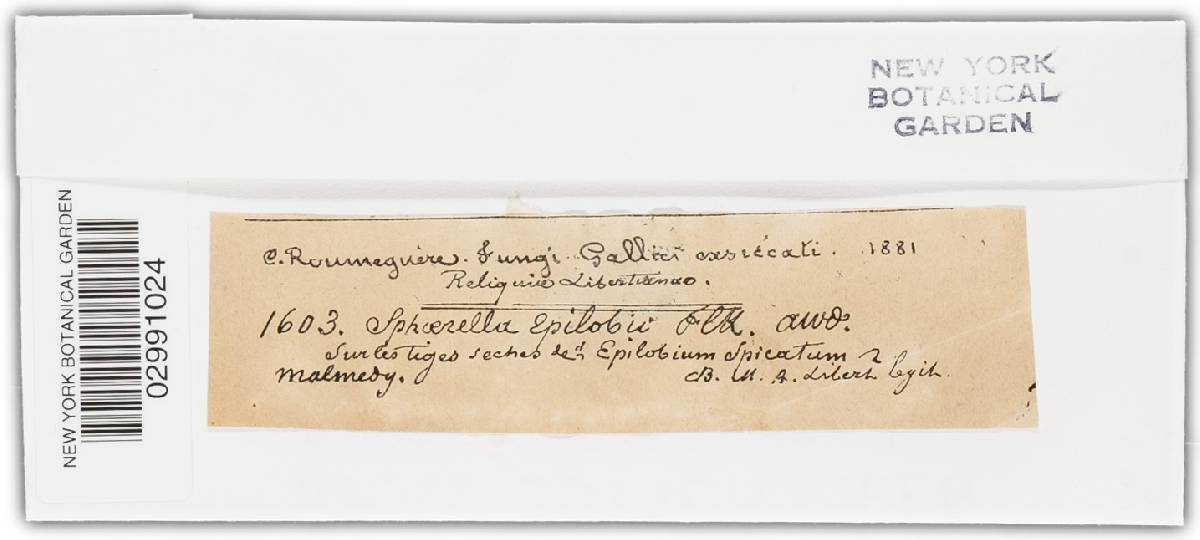 NEW YORK
BOTANICAL
GARDEN
NEW YORK BOTANICAL GARDEN
02991024
C. Roumeguère. Fungi Gallici exsiccati. 1881
Reliquiæ Libertianae.
1603. Sphærella Epilobii Awd.
Sur les tiges seches de l' Epilobium Spicatum
Malmedy. M. A. Libert legit.